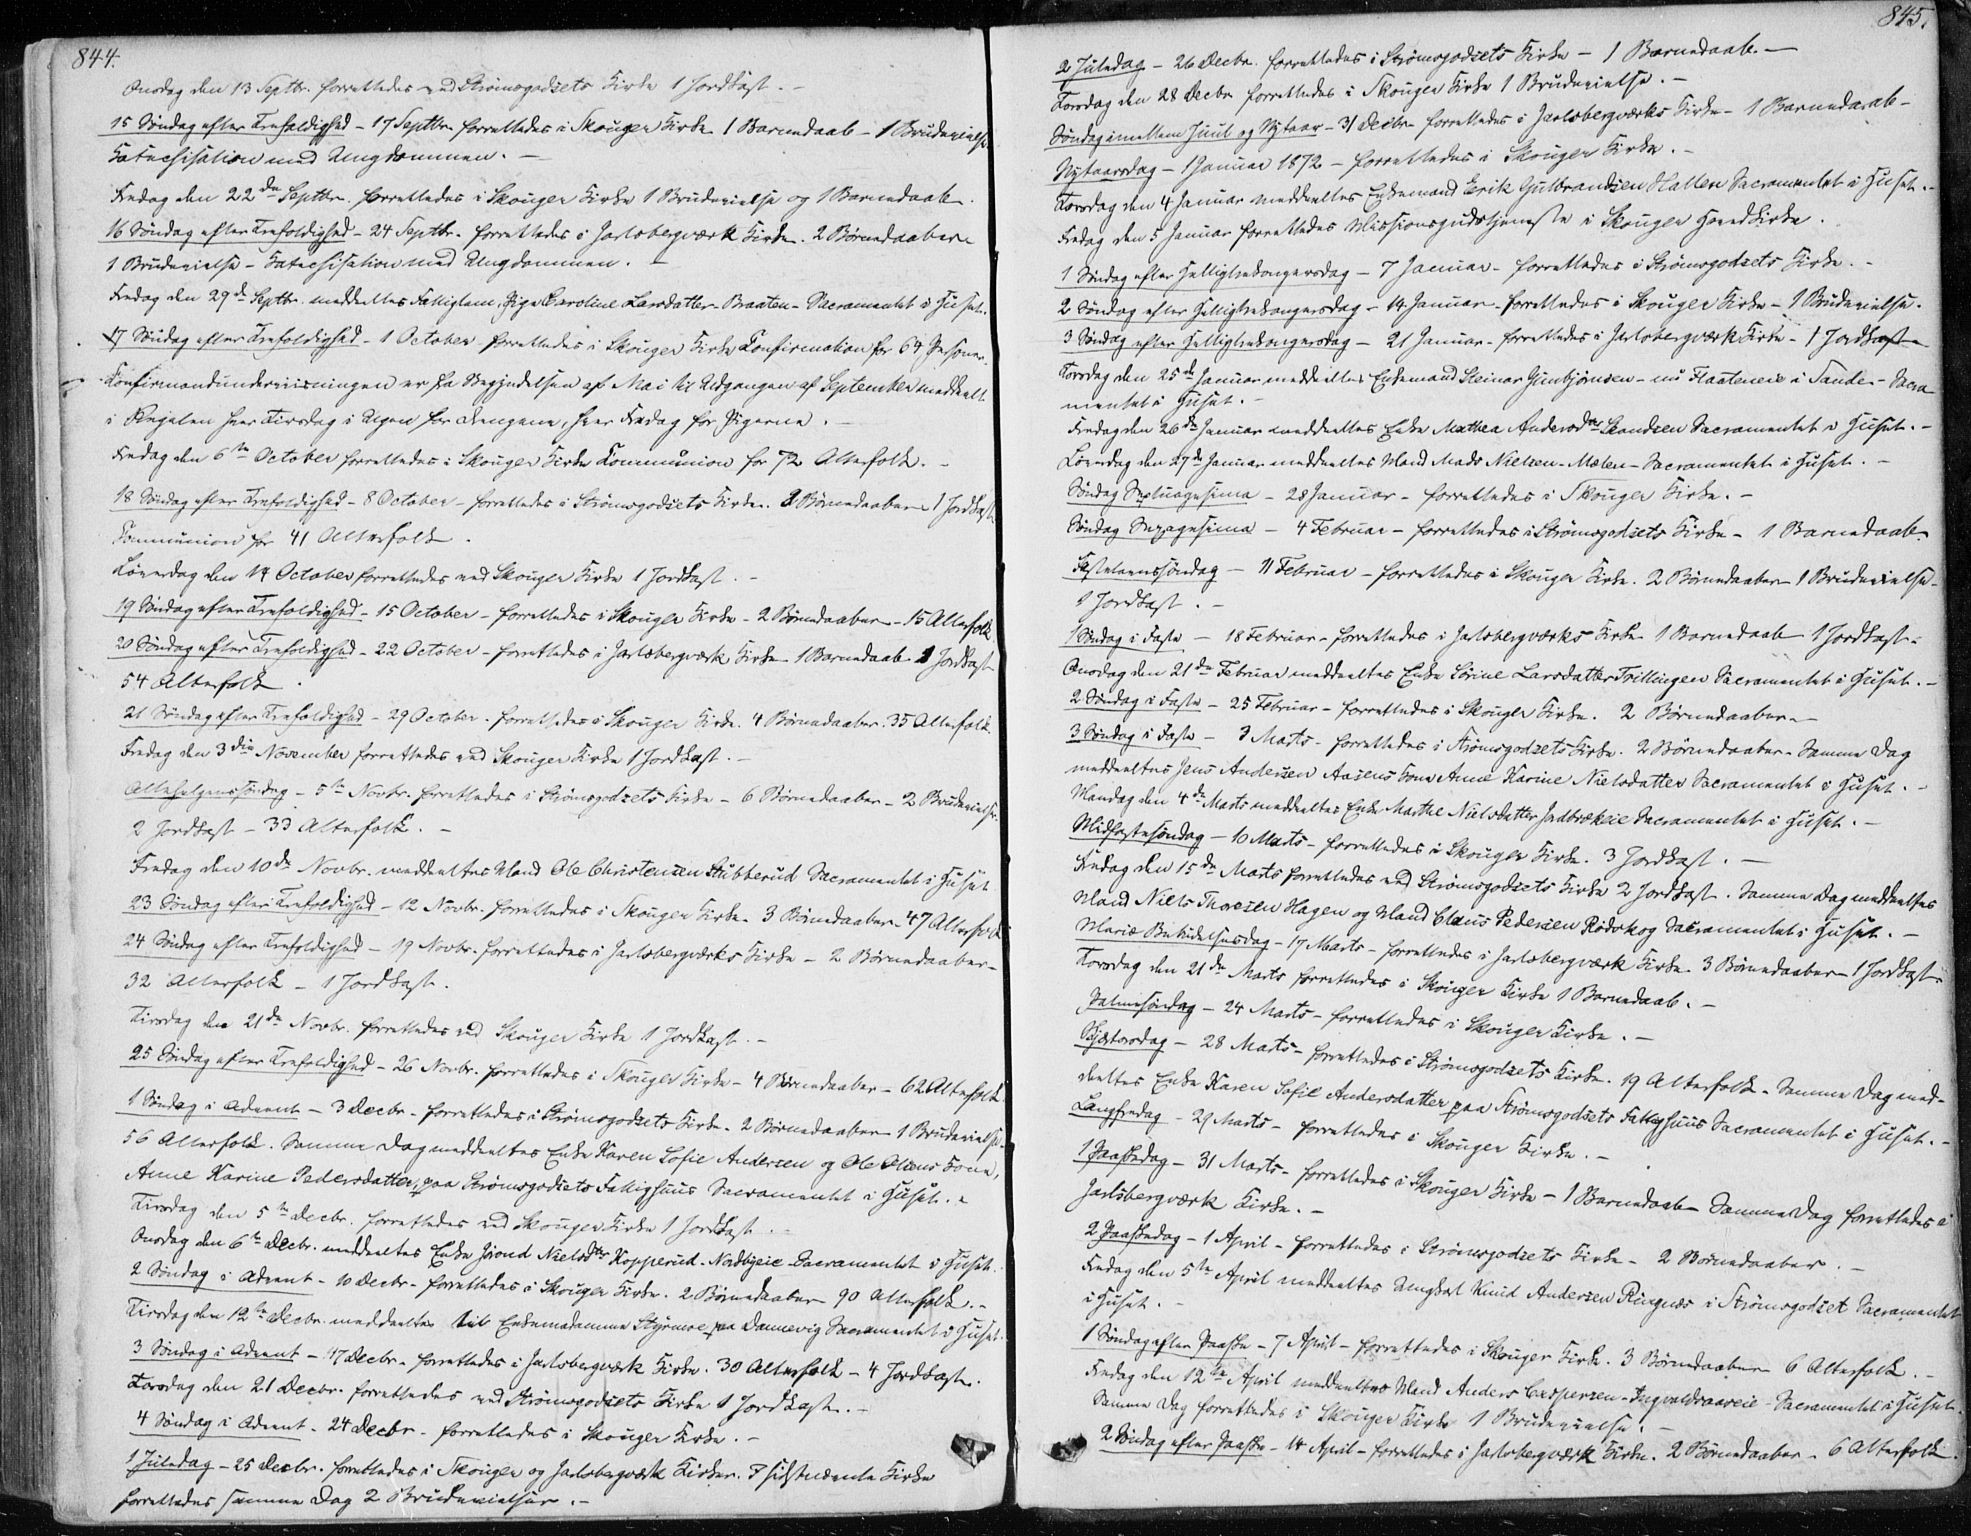 844.
Onsdag den 13 Septbr. forrettedes ved Strømsgodsets Kirke 1 Jordkast. –
15 Søndag efter Trefoldighed – 17 Septbr. forrettedes i Skouger Kirke 1 Barnedaab – 1 Brudevielse
Katechisation med Ungdommen. –
Fredag den 22de Septbr. forrettedes i Skouger Kirke 1 Brudevielse og 1 Barnedaab.
16 Søndag efter Trefoldighed – 24 Septbr. forrettedes i Jarlsbergværk Kirke. 2 Børnedaaber –
1 Brudevielse – Katechisation med Ungdommen. –
Fredag den 29de Septbr. meddeeltes Fattiglem, Pige Caroline Larsdatter Braaten – Sacramentet i Huset.
17 Søndag efter Trefoldighed – 1 October forrettedes i Skouger Kirke Confirmation for 64 Personer.
Konfirmandundervisningen er fra Begyndelsen af Mai til Udgangen af September meddeelt
i Regelen hver Tirsdag i Ugen for Drengene, hver Fredag for Pigerne. –
Fredag den 6te October forrettedes i Skouger Kirke Communion for 72 Alterfolk. –
18 Søndag efter Trefoldighed – 8 October – forrettedes i Strømsgodsets Kirke. 2 Børnedaaber 1 Jordkast
Communion for 41 Alterfolk.
Løverdag den 14 October forrettedes ved Skouger Kirke 1 Jordkast. –
19 Søndag efter Trefoldighed – 15 October – forrettedes i Skouger Kirke – 2 Børnedaaber – 15 Alterfolk
20 Søndag efter Trefoldighed – 22 October – forrettedes i Jarlsbergværk Kirke 1 Barnedaab 1 Jordkast
54 Alterfolk.
21 Søndag efter Trefoldighed – 29 October. forrettedes i Skouger Kirke. 4 Børnedaaber. 35 Alterfolk
Fredag den 3die November forrettedes ved Skouger Kirke 1 Jordkast. –
Allehelgenssøndag – 5te Novbr. forrettedes i Strømsgodsets Kirke – 6 Børnedaaber – 2 Brudevielser.
2 Jordkast – 33 Alterfolk. –
Fredag den 10de Novbr. meddeeltes Mand Ole Christensen Stubberud Sacramentet i Huset
23 Søndag efter Trefoldighed – 12 Novbr. forrettedes i Skouger Kirke 3 Børnedaaber – 47 Alterfolk
24 Søndag efter Trefoldighed – 19 Novbr. forrettedes i Jarlsbergværks Kirke – 2 Børnedaaber –
32 Alterfolk – 1 Jordkast.
Tirsdag den 21de Novbr. forrettedes ved Skouger Kirke 1 Jordkast. –
25 Søndag efter Trefoldighed – 26 Novbr. forrettedes i Skouger Kirke – 4 Børnedaaber – 62 Alterfolk
1 Søndag i Advent – 3 Decbr – forrettedes i Strømsgodsets Kirke. 2 Børnedaaber 1 Brudevielse
56 Alterfolk. Samme Dag meddeeltes Enke Karen Sofie Andersen og Ole Olsens Kone,
Anne Karine Pedersdatter, paa Strømsgodsets Fattighuus Sacramentet i Huset. –
Tirsdag den 5te Decbr. forrettedes ved Skouger Kirke 1 Jordkast. –
Onsdag den 6te Decbr. meddeeltes Enke Jørond Nielsdtr Kopperud-Nordbyeie Sacramentet i Huset.
2 Søndag i Advent – 10 Decbr – forrettedes i Skouger Kirke. 2 Børnedaaber 90 Alterfolk. –
Tirsdag den 12te Decbr. meddeeltes Enkemadamme Styrmoe paa Dannevig Sacramentet i Huset.
3 Søndag i Advent – 17 Decbr – forrettedes i Jarlsbergværk Kirke. 30 Alterfolk – 4 Jordkast.
Torsdag den 21 Decbr. forrettedes ved Strømsgodsets Kirke 1 Jordkast. –
4 Søndag i Advent – 24 Decbr – forrettedes i Skouger Kirke. –
1 Juledag – 25 Decbr. forrettedes i Skouger og Jarlsbergværk Kirker. I sidstnævnte Kirke
forrettedes samme Dag 2 Brudevielser. –
845.
2 Juledag – 26 Decbr. forrettedes i Strømsgodsets Kirke – 1 Barnedaab. –
Torsdag den 28 Decbr forrettedes i Skouger Kirke 1 Brudevielse. –
Søndag imellem Juul og Nytaar – 31 Decbr – forrettedes i Jarlsbergværks Kirke – 1 Barnedaab –
Nytaarsdag – 1 Januar 1872 – forrettedes i Skouger Kirke. –
Torsdag den 4 Januar meddeeltes Enkemand Erik Gulbrandsen Hallen Sacramentet i Huset. –
Fredag den 5 Januar forrettedes Missionsgudstjeneste i Skouger Hovedkirke.
1 Søndag efter Helligtrekongersdag – 7 Januar – forrettedes i Strømsgodsets Kirke. –
2 Søndag efter Helligtrekongersdag – 14 Januar – forrettedes i Skouger Kirke – 1 Brudevielse.
3 Søndag efter Helligtrekongersdag – 21 Januar – forrettedes i Jarlsbergværk Kirke – 1 Jordkast –
Torsdag den 25de Januar meddeeltes Enkemand Steinar Gunbjørnsen – nu Flaateneie i Sande – Sacra-
mentet i Huset. –
Fredag den 26de Januar meddeeltes Enke Mathea Andersdtr Skandsen Sacramentet i Huset. –
Løverdag den 27de Januar meddeeltes Mand Mads Nielsen – Mælen – Sacramentet i Huset. –
Søndag Septuagesima – 28 Januar – forrettedes i Skouger Kirke. –
Søndag Sexagesima – 4 Februar – forrettedes i Strømsgodsets Kirke – 1 Barnedaab –
Fastelavnssøndag – 11 Februar – forrettedes i Skouger Kirke. 2 Børnedaaber 1 Brudevielse –
1 Jordkast. –
1 Søndag i Faste – 18 Februar – forrettedes i Jarlsbergværks Kirke 1 Barnedaab 1 Jordkast –
Onsdag den 21de Februar meddeeltes Enke Sørine Larsdatter Trillingen Sacramentet i Huset. –
2 Søndag i Faste – 25 Februar – forrettedes i Skouger Kirke. 2 Børnedaaber –
3 Søndag i Faste – 3 Marts – forrettedes i Strømsgodsets Kirke. 2 Børnedaaber – Samme Dag
meddeeltes Jens Andersen Aasens Kone Anne Karine Nielsdatter Sacramentet i Huset. –
Mandag den 4de Marts meddeeltes Enke Marthe Nielsdatter Jadbrækeie Sacramentet i Huset. –
Midfastesøndag – 10 Marts – forrettedes i Skouger Kirke. 3 Jordkast. –
Fredag den 15de Marts forrettedes ved Strømsgodsets Kirke 2 Jordkast. Samme Dag meddeeltes
Mand Niels Thoresen Hagen og Mand Claus Pedersen Rødskog Sacramentet i Huset. –
Mariæ Bebudelsesdag – 17 Marts – forrettedes i Jarlsbergværk Kirke. 3 Børnedaaber – 1 Jordkast –
Torsdag den 21de Marts forrettedes i Skouger Kirke 1 Barnedaab. –
Palmesøndag – 24 Marts – forrettedes i Skouger Kirke. –
Skjærtorsdag – 28 Marts – forrettedes i Strømsgodsets Kirke. 19 Alterfolk – Samme Dag med-
deeltes Enke Karen Sofie Andersdatter paa Strømsgodsets Fattighuus Sacramentet i Huset. –
Langfredag – 29 Marts – forrettedes i Skouger Kirke. –
1 Paaskedag – 31 Marts – forrettedes i Skouger Kirke – 1 Barnedaab – Samme Dag forrettedes i
Jarlsbergværk Kirke. –
2 Paaskedag – 1 April – forrettedes i Strømsgodsets Kirke – 2 Børnedaaber. –
Fredag den 5te April meddeeltes Ungkarl Knud Andersen Ringnæs i Strømsgodset Sacramentet
i Huset. –
1 Søndag efter Paaske – 7 April – forrettedes i Skouger Kirke. 3 Børnedaaber 6 Alterfolk. –
Fredag den 12te April meddeeltes Mand Anders Caspersen – Ingvaldsaaseie – Sacramentet i Huset.
Samme Dag forrettedes i Skouger Kirke 1 Brudevielse. –
2 Søndag efter Paaske – 14 April – forrettedes i Jarlsbergværk Kirke. 2 Børnedaaber – 6 Alterfolk.